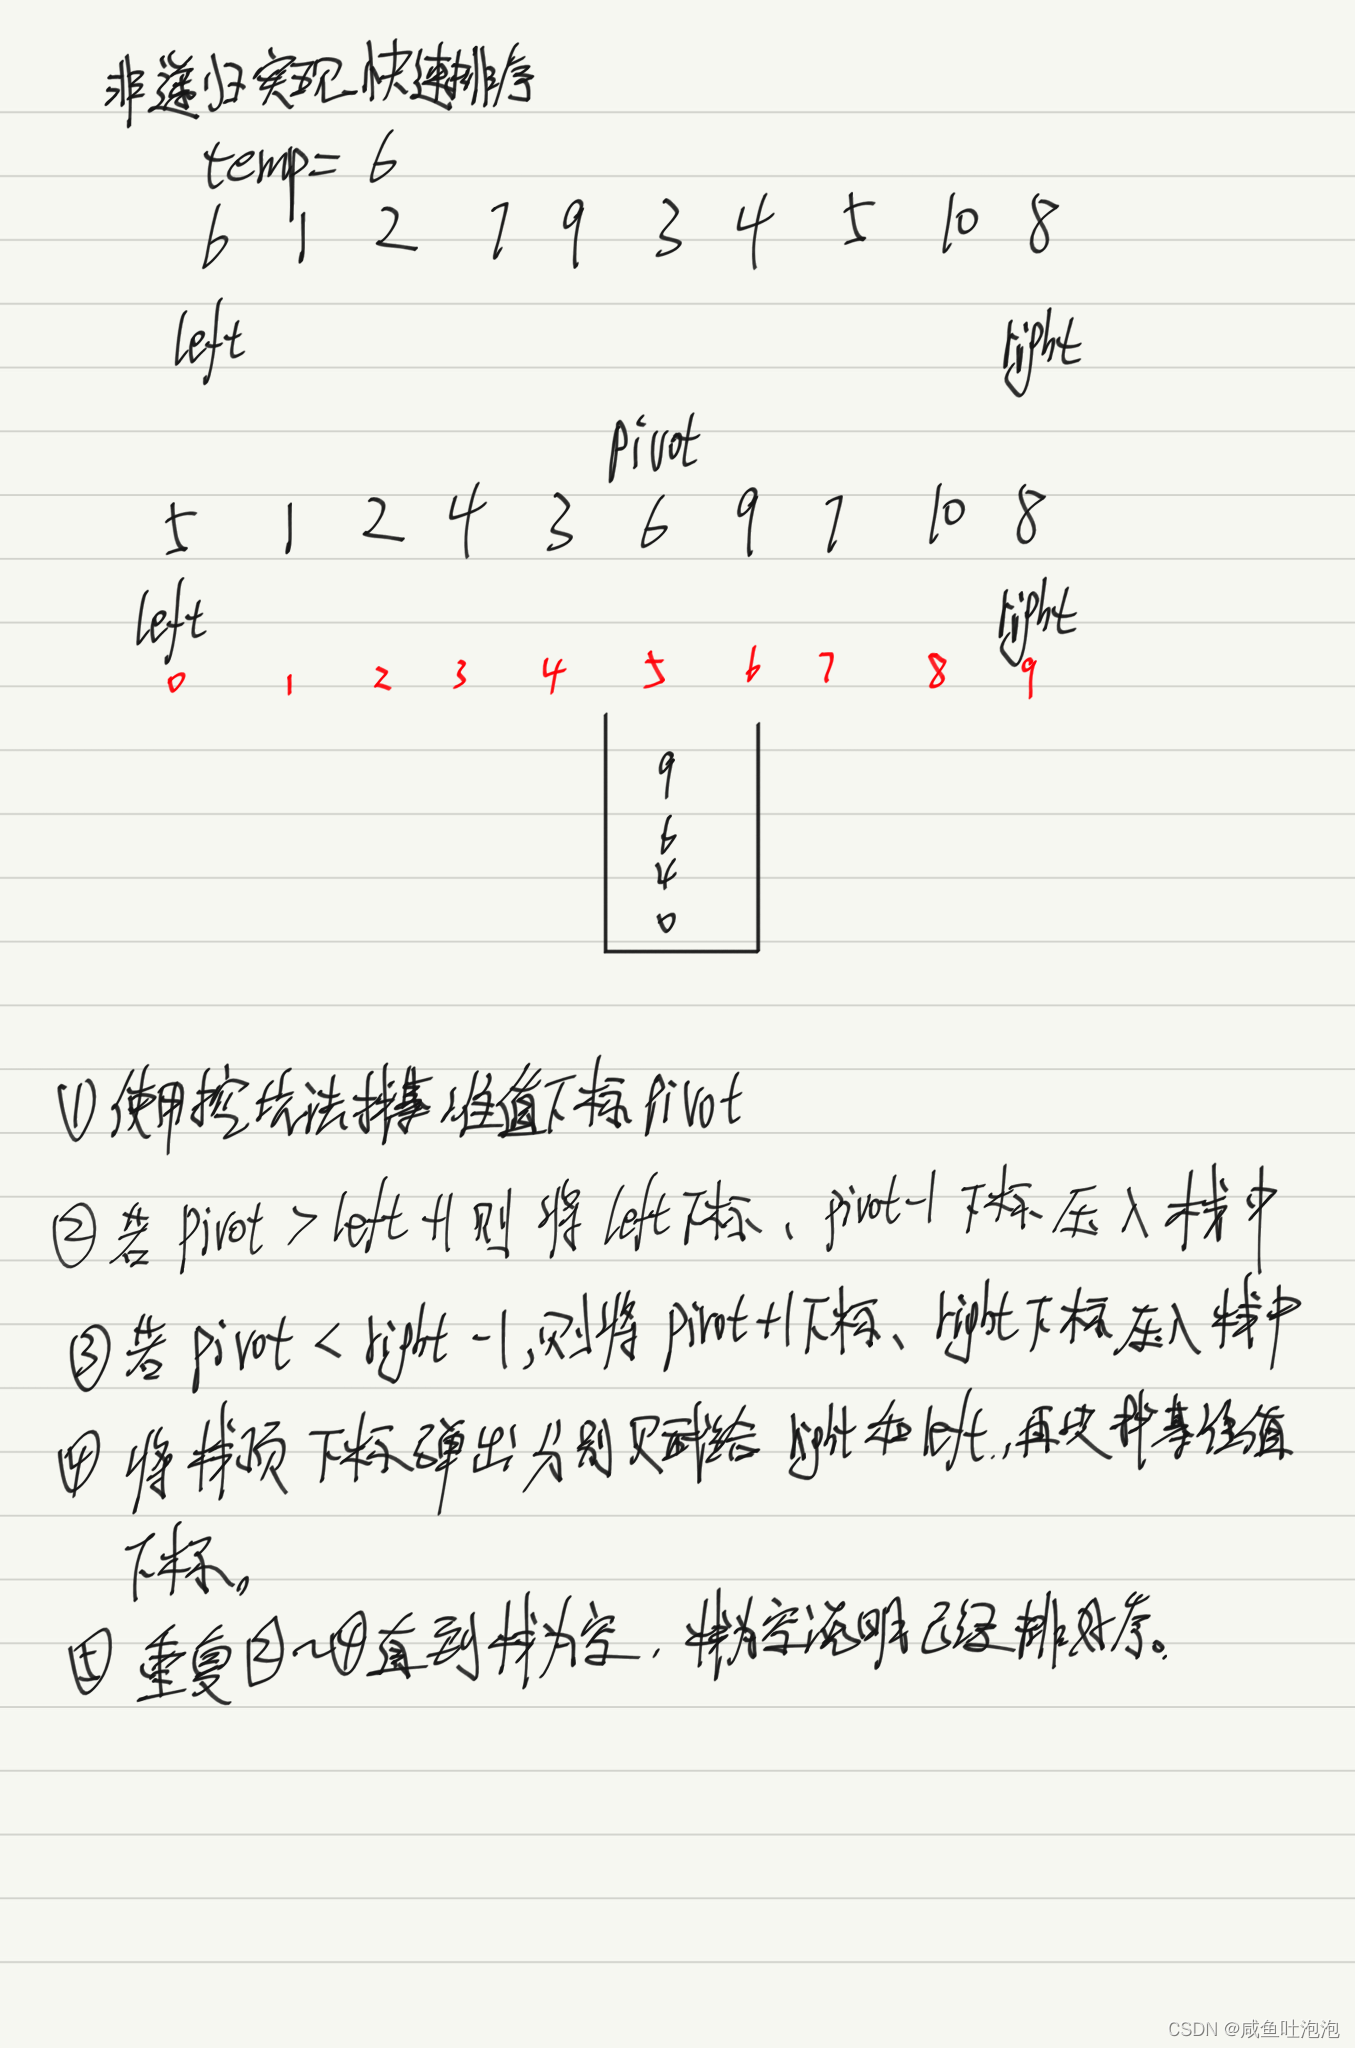 非递归实现快速排序
temp= 6
6 1 2 7 9 3 4 5 10 8
left right
pivot
5 1 2 4 3 6 9 7 10 8
left right
0 1 2 3 4 5 6 7 8 9
9
6
4
0
① 使用挖坑法找基准值下标 pivot
② 若 pivot > left +1 则将 left 下标、pivot-1 下标压入栈中
③ 若 pivot < right -1,则将 pivot+1下标、right下标压入栈中
④ 将栈顶下标弹出分别赋给 right 和 left,再次找基准值
下标。
⑤ 重复②~④直到栈为空,栈为空说明已经排好序。
CSDN @咸鱼吐泡泡